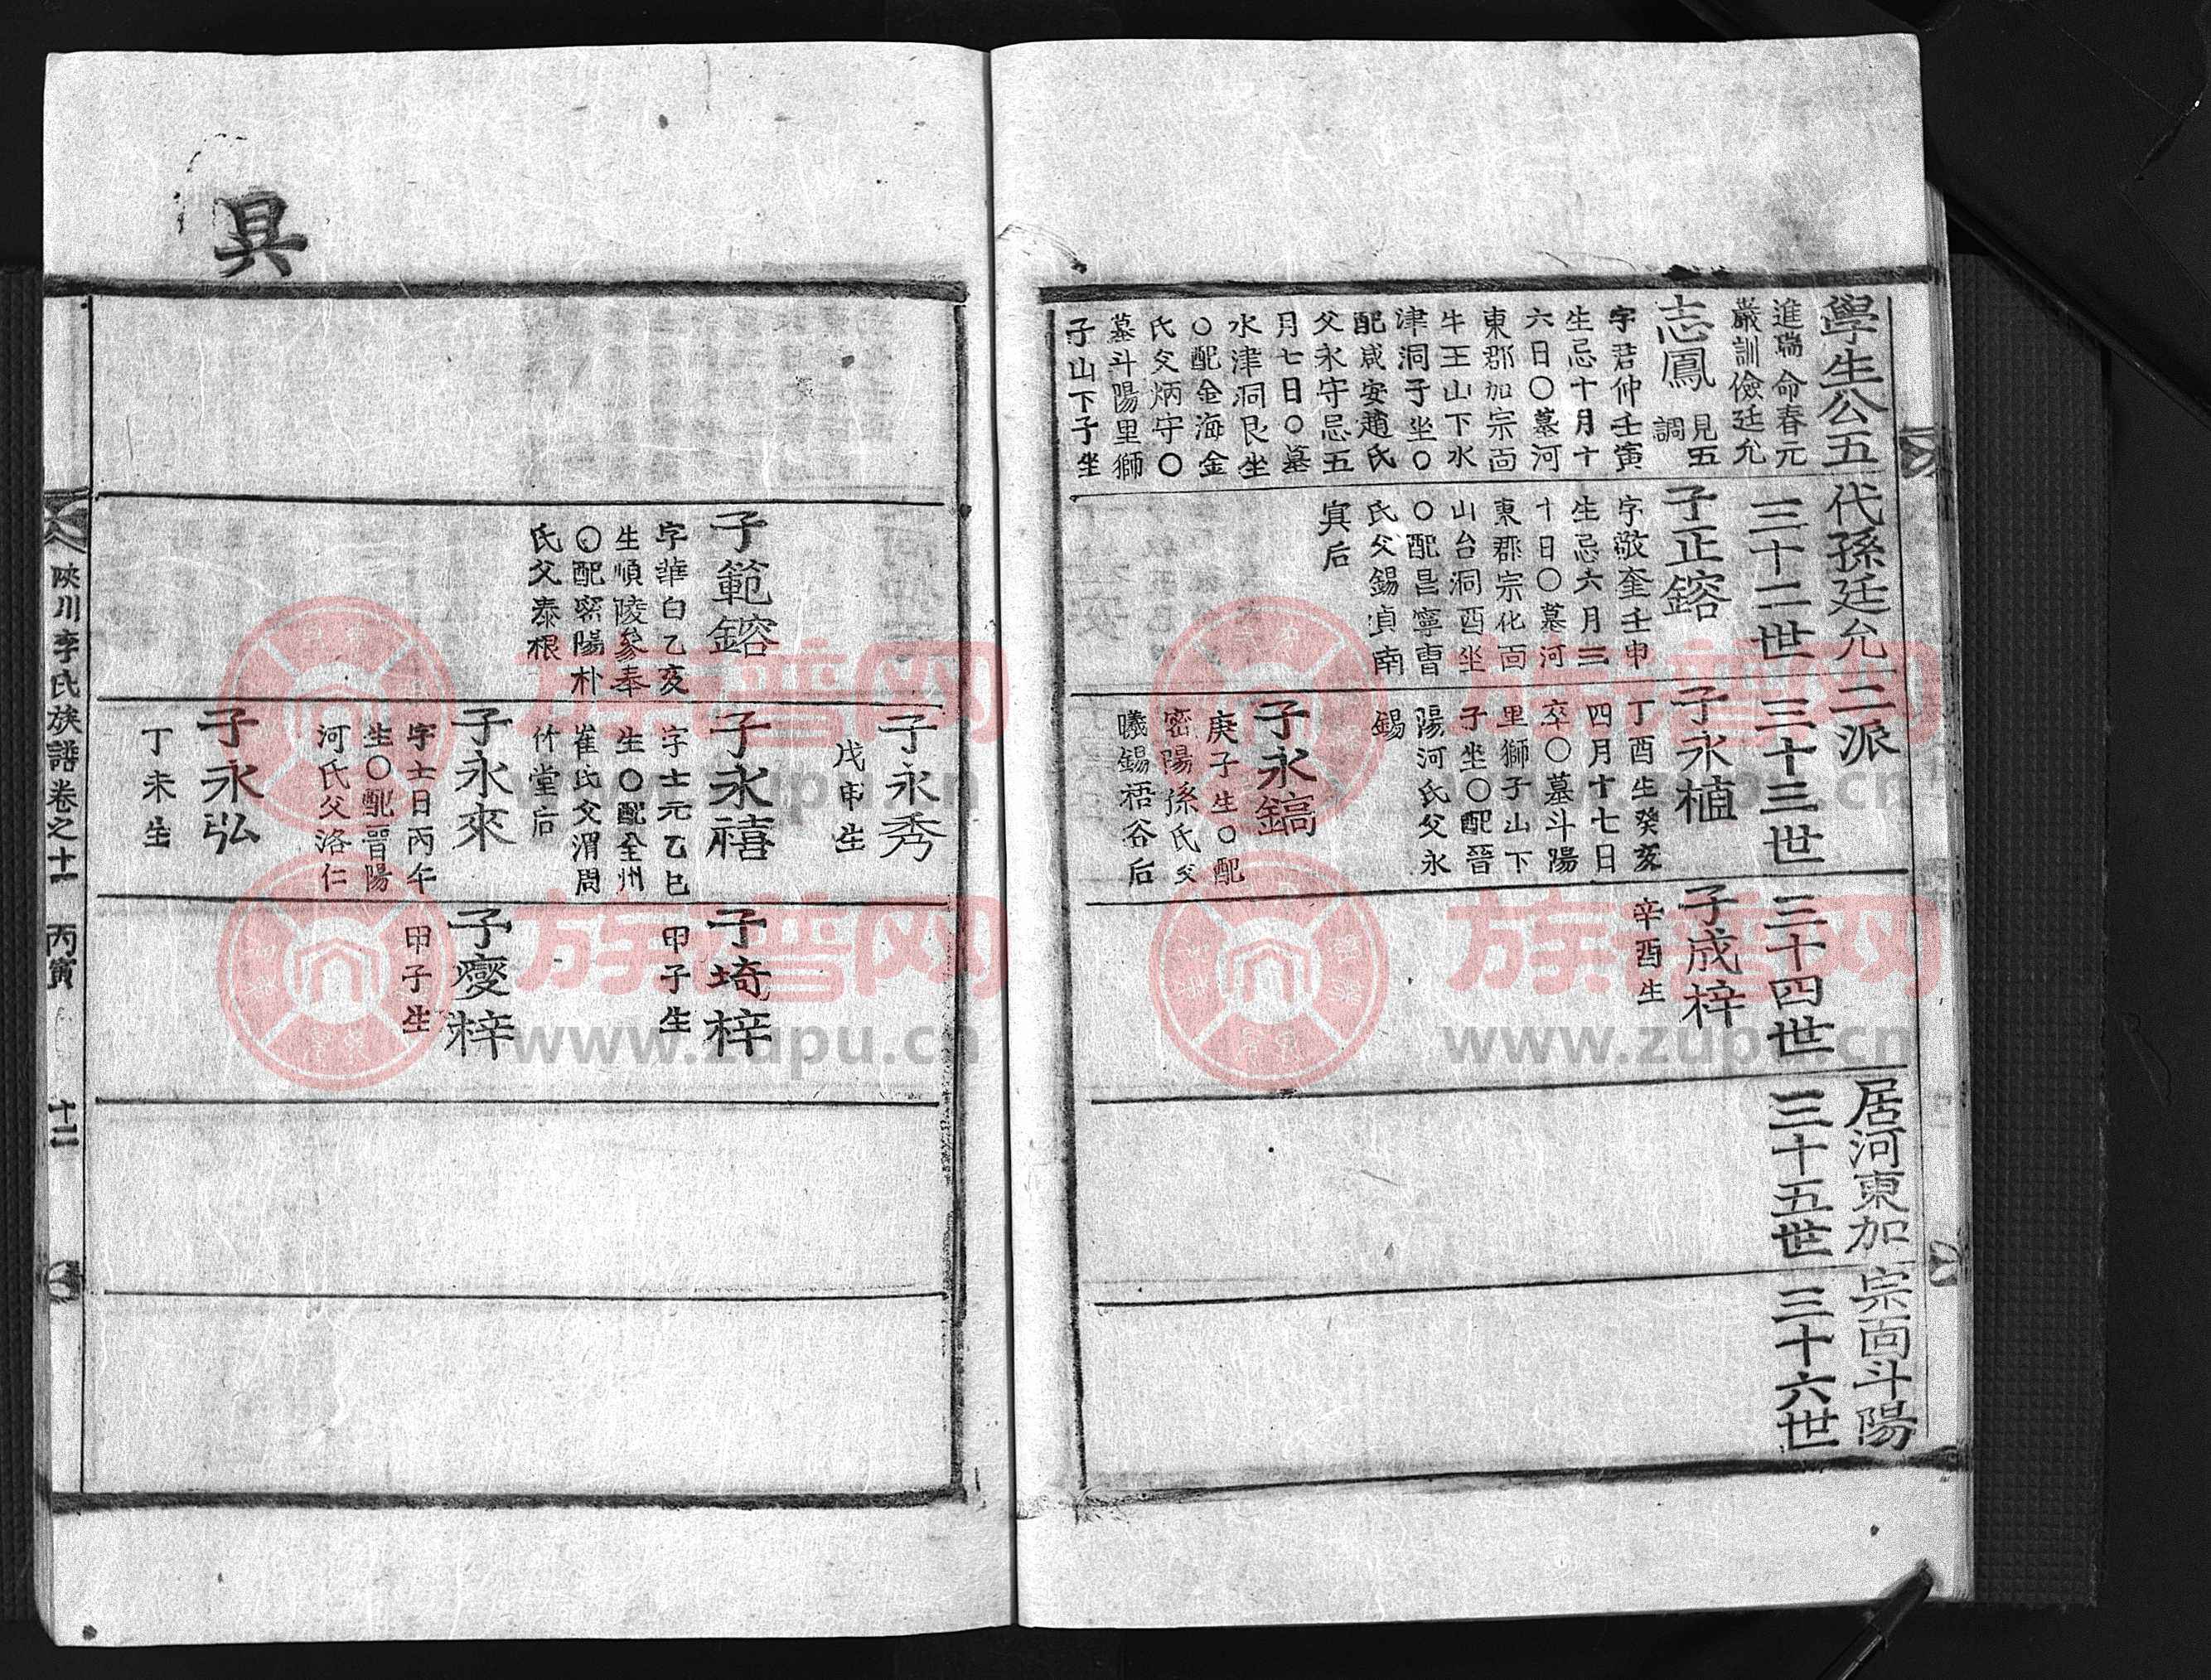 學生公五代孫廷允二派居河東加宗面斗陽
三十二世
三十三世
三十四世
三十五世
三十六世
進瑞命春元
嚴訓儉廷允
志鳳
見五
調
字君仲壬寅
生忌十月十
六日〇墓河
東郡加宗面
牛王山下水
津洞子坐〇
配咸安趙氏
父永守忌五
月七日〇墓
水津洞艮坐
〇配金海金
氏父炳守〇
墓斗陽里獅
子山下子坐
子正鎔
字敬奎壬申
生忌六月三
十日〇墓河
東郡宗化面
山台洞酉坐
〇配昌寧曺
氏父錫貞南
冥后
子永植
丁酉生癸亥
四月十七日
卒〇墓斗陽
里獅子山下
子坐〇配晉
陽河氏父永
錫
子永鎬
庚子生〇配
密陽孫氏父
曦錫梧谷后
子成梓
辛酉生
子範鎔
字華白乙亥
生順陵參奉
〇配密陽朴
氏父泰根
子永秀
戊申生
子永禧
字士元乙巳
生〇配全州
崔氏父渭周
竹堂后
子永來
字士日丙午
生〇配晉陽
河氏父洛仁
子永弘
丁未生
子埼梓
甲子生
子燮梓
甲子生
具
陜川李氏族譜卷之十一 丙寅 十二
族谱网
www.zupu.cn
族谱网
www.zupu.cn
族谱网
www.zupu.cn
族谱网
www.zupu.cn